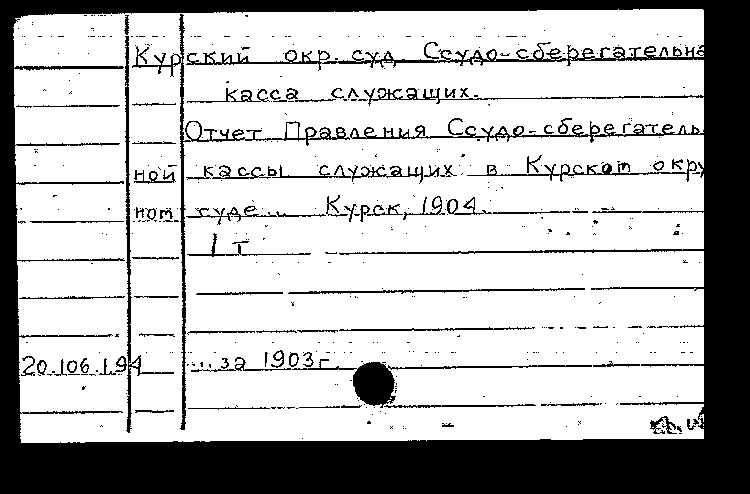 Курский окр. суд. Ссудо-сберегательна
касса служащих.
Отчет Правления Ссудо-сберегатель-
ной кассы служащих в Курском окру
ном суде... Курск, 1904.
1 т
20.106.1.94 ...за 1903г.